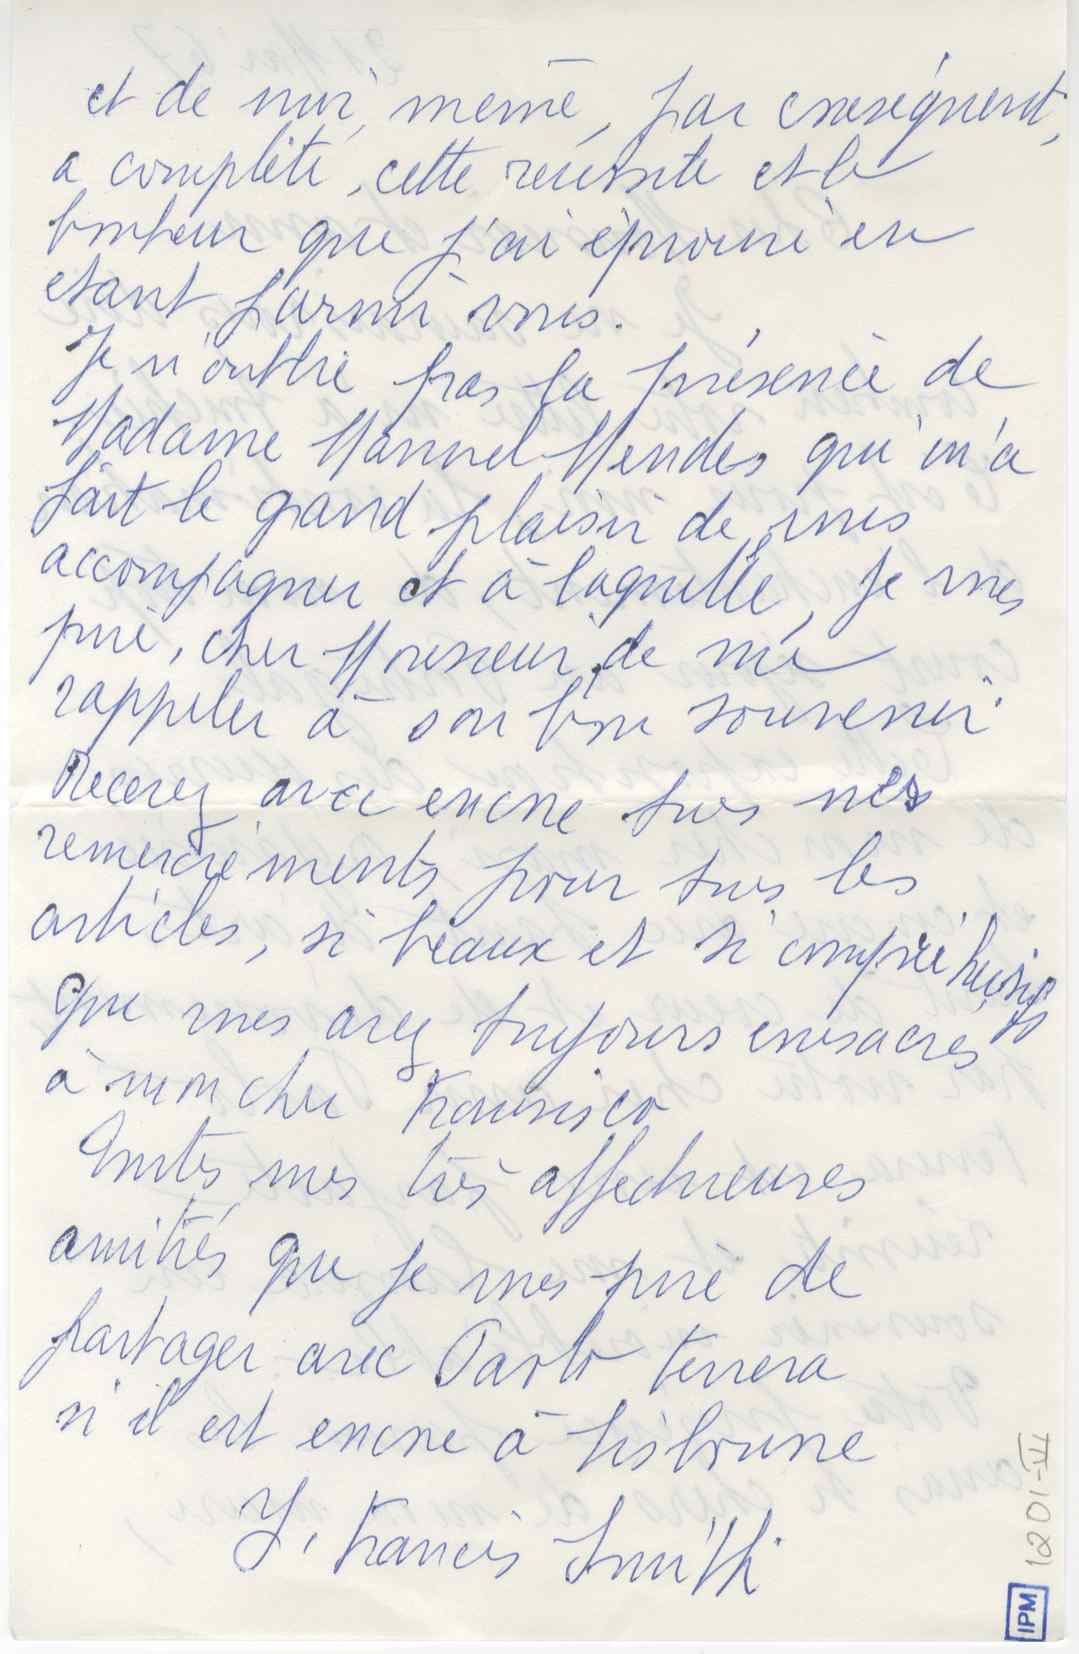 et de moi même, par conséquent,
a complété, cette réussite et le
bonheur que j'ai éprouvé en
étant parmi vous.
Je n'oublie pas la présence de
Madame Manuel Mendes qui m'a
fait le grand plaisir de vous
accompagner et à laquelle, je vous
prie, cher Monsieur, de me
rappeler à son bon souvenir.
Recevez avec encore tous mes
remerciements pour tous les
articles, si beaux et si compréhensifs
que vous avez toujours consacrés
à mon cher Francisco
Toutes mes très affectueuses
amitiés que je vous prie de
partager avec Paolo Ferrera
si il est encore à Lisbonne
Y. Francis Smith
1201-III
IPM